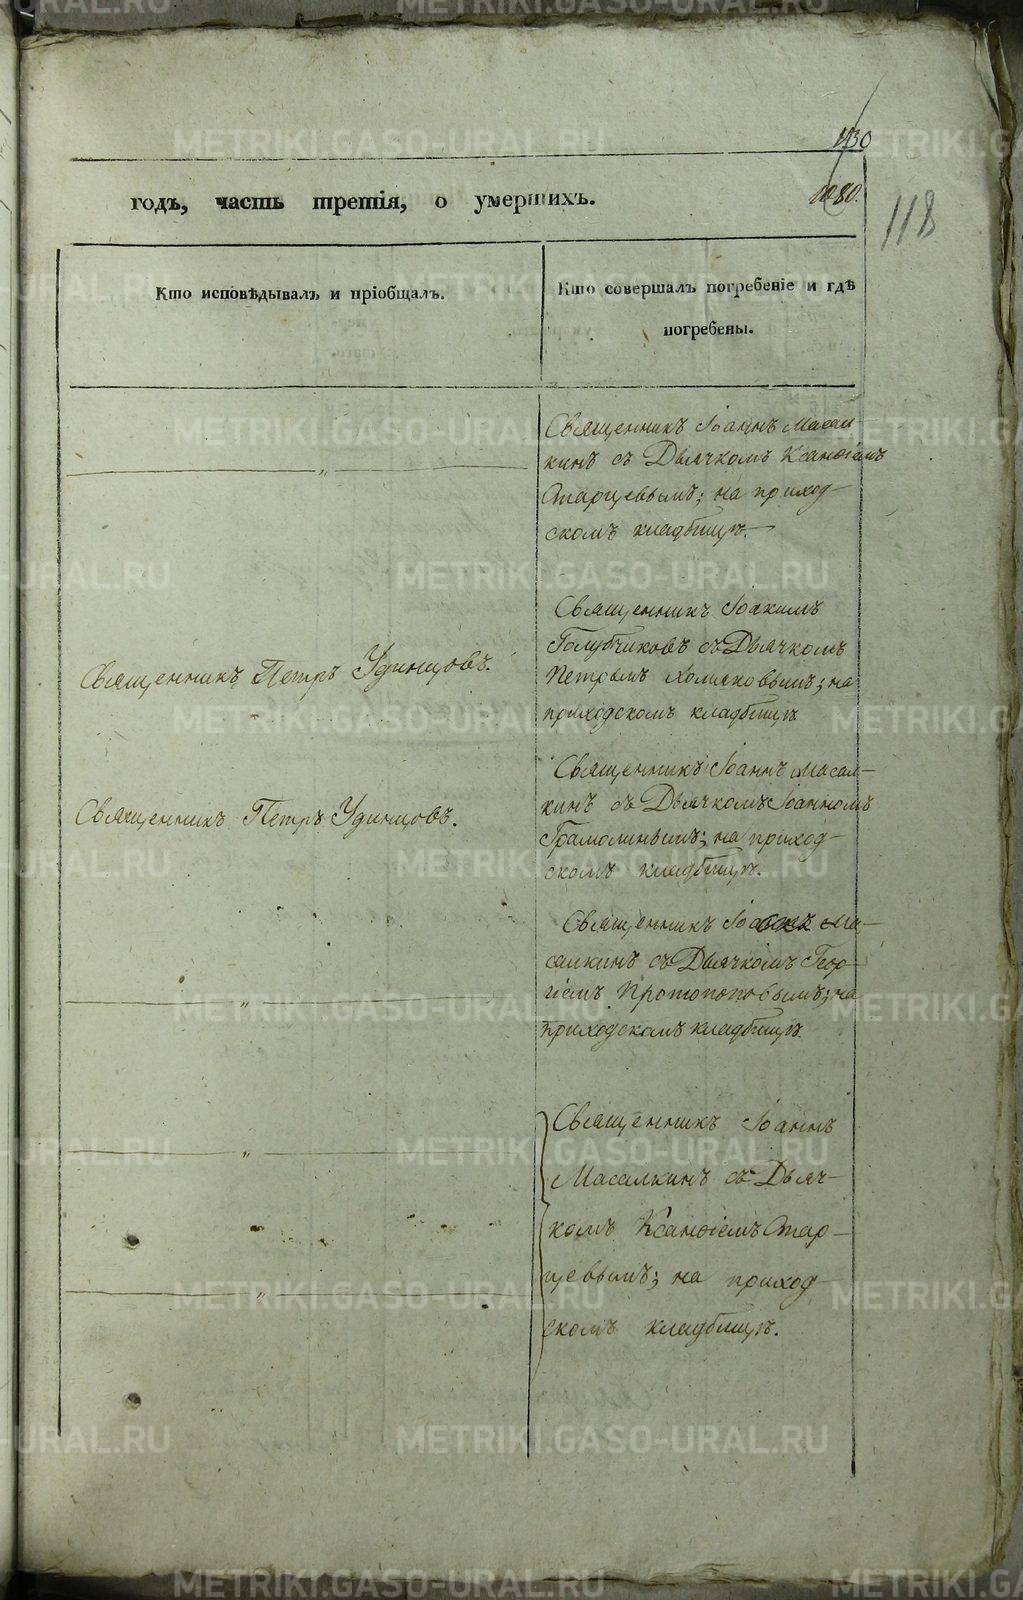 1130
1080.
118
годъ, часть третія, о умершихъ.
Кто исповѣдывалъ и пріобщалъ.
Кто совершалъ погребеніе и гдѣ
погребены.
Священникъ Іоаннъ Масал-
кинъ съ Дьячкомъ Ксанѳіемъ
Старцевымъ; на приход-
скомъ кладбищѣ.
Священникъ Петръ Удинцовъ.
Священникъ Іоакимъ
Голубчиковъ съ Дьячкомъ
Петромъ Холмковымъ; на
приходскомъ кладбищѣ
Священникъ Петръ Удинцовъ.
Священникъ Іоаннъ Масал-
кинъ съ Дьячкомъ Іоанномъ
Грамолинымъ; на приход-
скомъ кладбищѣ.
Священникъ Іоаннъ Ма-
салкинъ съ Дьячкомъ Геор-
гіемъ Протопоповымъ; на
приходскомъ кладбищѣ.
Священникъ Іоаннъ
Масалкинъ съ Дьяч-
комъ Ксанѳіемъ Стар-
цевымъ; на приход
скомъ кладбищѣ.
METRIKI.GASO-URAL.RU